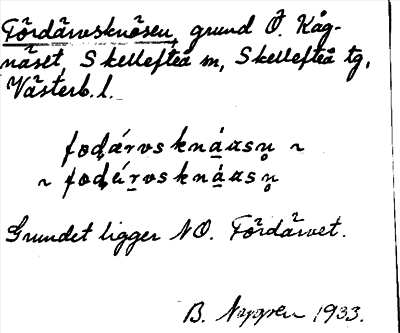 Fördärvsknösen, grund Ö. Kåg-
näset, Skellefteå m, Skellefteå tg,
Västerb. l.
fodárvsknáasn ~
~ fodárvsknáasn
Grundet ligger NO. Fördärvet.
B. Nygren 1933.